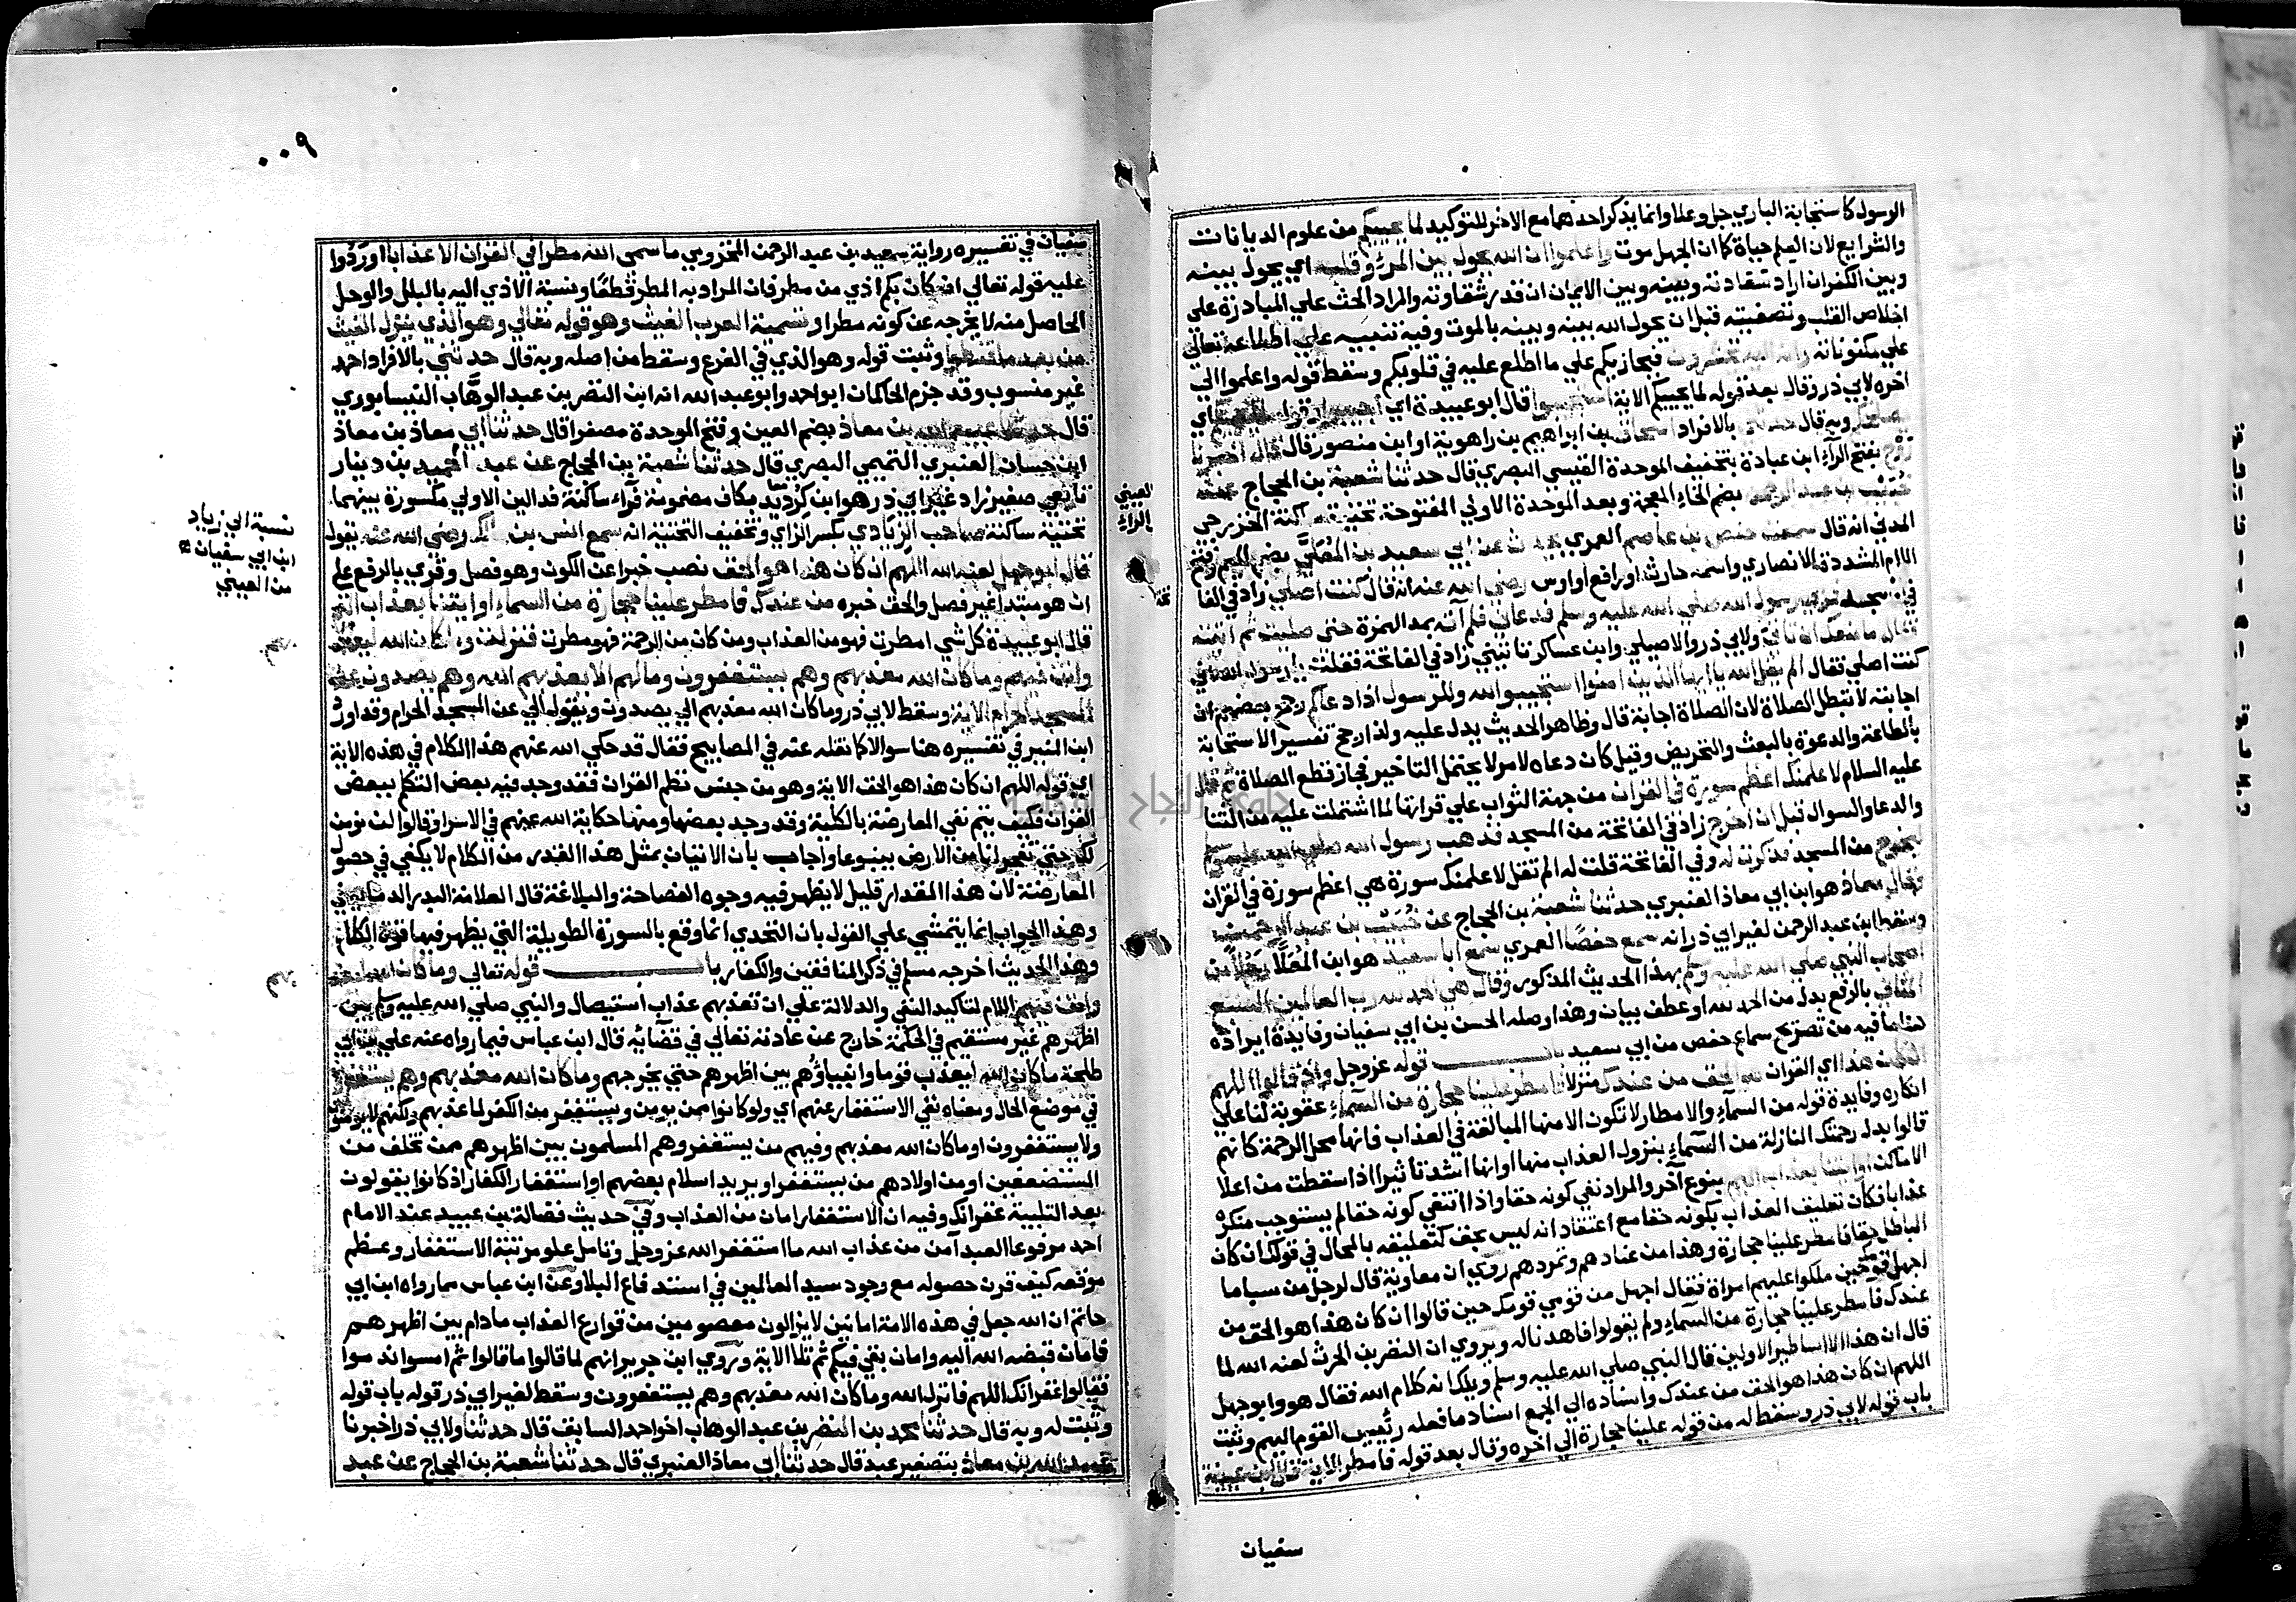 الرسول كاستجابة الباري جل وعلا وانما يذكر احدهما مع الاخر للتوكيد لما يحييكم من علوم الديانات
والشرايع لان العلم حياة كما ان الجهل موت واعلموا ان الله يحول بين المرء وقلبه اي يحول بينه
وبين الكفران اراد سعادته وبينه وبين الايمان ان قدر شقاوته والمراد الحث علي المبادرة علي
اخلاص القلب وتصفيته قبل ان يحول الله بينه وبينه بالموت وفيه تنبيه علي اطلاعه تعالي
علي مكنوناته وانه اليه تحشرون فيجازيكم علي ما اطلع عليه في قلوبكم وسقط قوله واعلموا الي
اخره لابي ذر وقال بعد قوله لما يحييكم الاية استجيبوا قال ابو عبيدة اي اجيبوا
وبه قال حدثني بالافراد اسحاق بن ابراهيم بن راهوية او ابن منصور قال اخبرنا
روح بفتح الرآء ابن عبادة بتخفيف الموحدة القيسي البصري قال حدثنا شعبة بن الحجاج عن
خبيب بن عبد الرحمن بضم الخاء المعجمة وبعد الموحدة الاولي المفتوحة تحتية ساكنة الخزرجي
المدني انه قال سمعت حفص بن عاصم العمري يحدث عن ابي سعيد بن المُعَلَّي بضم الميم وفتح
اللام المشددة الانصاري واسمه حارث او رافع او اوس رضي الله عنه انه قال كنت اصلي زاد في الفا
رسول الله صلي الله عليه وسلم فدعاني فلم آته بمد الهمزة حتي صليت ثم اتيته
فقال ما منعك ان تاتي ولابي ذر والاصيلي وابن عساكر تاتيني زاد في الفاتحة فقلت يا رسول الله اني
كنت اصلي فقال الم يقل الله يا ايها الذين امنوا استجيبوا لله وللرسول اذا دعاكم رجح بعضهم ان
اجابته لا تبطل الصلاة لان الصلاة اجابة قال وظاهر الحديث يدل عليه ولذا رجح تفسير الاستجابة
بالطاعة والدعوة بالبعث والتحريض وقيل كان دعاه لامر لا يحتمل التاخير فجاز قطع الصلاة ثم قال
عليه السلام لاعلمنك اعظم سورة في القران من جهة الثواب علي قراتها لما اشتملت عليه من الثنا
والدعا والسوال قبل ان اخرج زاد في الفاتحة من المسجد فذهب رسول الله صلي الله عليه وسلم
ليخرج من المسجد فذكرت له وفي الفاتحة قلت له الم تقل لاعلمنك سورة هي اعظم سورة في القران
وقال معاذ هو ابن ابي معاذ العنبري حدثنا شعبة بن الحجاج عن خُبَيْب بن عبد الرحمن
وسقط ابن عبد الرحمن لغير ابي ذر انه سمع حفصا العمري سمع ابا سعيد هو ابن المُعَلَّا رجلا من
اصحاب النبي صلي الله عليه وسلم بهذا الحديث المذكور وقال هي الحمد لله رب العالمين السبع
المثاني بالرفع بدل من الحمد لله او عطف بيان وهذا وصله الحسن بن ابي سفيان وفايدة ايراده
هنا ما فيه من تصريح سماع حفص من ابي سعيد باب قوله عز وجل واذ قالوا اللهم
ان كان هذا اي القران هو الحق من عندك منزلا فامطر علينا حجارة من السمآء عقوبة لنا علي
انكاره وفايدة قوله من السمآء والامطار لا تكون الا منها المبالغة في العذاب فانها محل الرحمة كانهم
قالوا بدل رحمتك النازلة من السمآء بنزول العذاب منها او انها اشد تاثيرا اذا سقطت من اعلا
الاماكن او ايتنا بعذاب اليم بنوع آخر والمراد نفي كونه حقا واذا انتفي كونه حقا لم يستوجب منكره
عذابا فكان تعليق العذاب بكونه حقا مع اعتقاد انه ليس بحق كتعليقه بالمحال في قولك ان كان
الباطل حقا فامطر علينا حجارة وهذا من عنادهم وتمردهم روي ان معاوية قال لرجل من سبا ما
اجهل قومك حين ملكوا عليهم امراة فقال اجهل من قومي قومك حين قالوا ان كان هذا هو الحق من
عندك فامطر علينا حجارة من السمآء ولم يقولوا فاهدنا له ويروي ان النضر بن الحرث لعنه الله لما
قال ان هذا الا اساطير الاولين قال النبي صلي الله عليه وسلم ويلك انه كلام الله فقال هو وابو جهل
اللهم ان كان هذا هو الحق من عندك واسناده الي الجمع اسناد ما فعله رئيس القوم اليهم وثبت
باب قوله لابي ذر وسقط له من قوله علينا حجارة الي اخره وقال بعد قوله فامطر الاية قال ابن عيينة
سفيان
العيني
الزاء
٠٠٩
سفيان في تفسيره رواية سعيد بن عبد الرحمن المخزومي ما سمي الله مطرا في القران الا عذابا اوردوا
عليه قوله تعالي ان كان بكم اذي من مطر فان المراد به المطر قطعًا ونسبة الاذي اليه بالبلل والوحل
الحاصل منه لا يخرجه عن كونه مطرا وتسمية العرب الغيث وهو قوله تعالي وهو الذي ينزل الغيث
من بعد ما قنطوا وثبت قوله وهو الذي في الفرع وسقط من اصله وبه قال حدثني بالافراد احمد
غير منسوب وقد جزم الحاكمان ابو احمد وابو عبد الله انه ابن النضر بن عبد الوهَّاب النيسابوري
قال حدثنا عبيد الله بن معاذ بضم العين وفتح الموحدة مصغرا قال حدثنا ابي معاذ بن معاذ
ابن حسان العنبري التميمي البصري قال حدثنا شعبة بن الحجاج عن عبد الحميد بن دينار
تابعي صغير زاد غير ابي ذر هو ابن كُرديد بكاف مضمومة فرآء ساكنة فدالين الاولي مكسورة بينهما
تحتية ساكنة صاحب الزيادي بكسر الزاي وتخفيف التحتية انه سمع انس بن مالك رضي الله عنه يقول
قال ابو جهل لعنه الله اللهم ان كان هذا هو الحق نصب خبرا عن الكون وهو فصل وقري بالرفع علي
ان هو مبتدا غير فصل والحق خبره من عندك فامطر علينا حجارة من السمآء او ايتنا بعذاب اليم
قال ابو عبيدة كل شي امطرت فهو من العذاب وما كان من الرحمة فهو مطرت فنزلت وما كان الله ليعذبهم
وانت فيهم وما كان الله معذبهم وهم يستغفرون وما لهم الا يعذبهم الله وهم يصدون عن
المسجد الحرام الاية وسقط لابي ذر وما كان الله معذبهم الي يصدون ويقوله الي عن المسجد الحرام وقد اورد
ابن المنير في تفسيره هنا سوالا كما نقله عنه في المصابيح فقال قد حكي الله عنهم هذا الكلام في هذه الاية
اي قوله اللهم ان كان هذا هو الحق الاية وهو من جنس نظم القران فقد وجد فيه بعض التكلم ببعض
القران فكيف يتم نفي المعارضة بالكلية وقد وجد بعضها ومنها حكاية الله عنهم في الاسرا وقالوا لن نومن
لك حتي تفجر لنا من الارض ينبوعا واجاب بان الاتيان بمثل هذا القدر من الكلام لا يكفي في حصول
المعارضة لان هذا المقدار قليل لا يظهر فيه وجوه الفصاحة والبلاغة قال العلامة البدر الدماميني
وهذا الجواب انما يتمشي علي القول بان التحدي انما وقع بالسورة الطويلة التي يظهر فيها قوة الكلام
وهذا الحديث اخرجه مسلم في ذكر المنافقين والكفار باب قوله تعالي وما كان الله ليعذبهم
وانت فيهم اللام لتاكيد النفي والدلالة علي ان تعذبهم عذاب استيصال والنبي صلي الله عليه وسلم بين
اظهرهم غير مستقيم في الحكمة خارج عن عادته تعالي في قضآئه قال ابن عباس فيما رواه عنه علي بن ابي
طلحة ما كان الله ليعذب قوما وانبياؤهم بين اظهرهم حتي يخرجهم وما كان الله معذبهم وهم يستغفرون
في موضع الحال ومعناه نفي الاستغفار عنهم اي ولو كانوا ممن يومن ويستغفر من الكفر لما عذبهم ولكنهم لا يومنون
ولا يستغفرون او ما كان الله معذبهم وفيهم من يستغفر وهم المسلمون بين اظهرهم ممن تخلف من
المستضعفين او من اولادهم من يستغفر او يريد اسلام بعضهم او استغفار الكفار اذ كانوا يقولون
بعد التلبية غفرانك وفيه ان الاستغفار امان من العذاب وفي حديث فضالة بن عبيد عند الامام
احمد مرفوعا العبد آمن من عذاب الله ما استغفر الله عز وجل وتامل علو مرتبة الاستغفار وعظم
موقعه كيف قرن حصوله مع وجود سيد العالمين في استدفاع البلا وعن ابن عباس مما رواه ابن ابي
حاتم ان الله جعل في هذه الامة امانين لا يزالون معصومين من قوارع العذاب ما دام بين اظهرهم
فامان قبضه الله اليه وامان بقي فيكم ثم تلا الاية وروي ابن جرير انهم لما قالوا ما قالوا ثم امسوا ندموا
فقالوا غفرانك اللهم فانزل الله وما كان الله معذبهم وهم يستغفرون وسقط لغير ابي ذر قوله باب قوله
وثبت له وبه قال حدثنا محمد بن النضر بن عبد الوهاب اخو احمد السابق قال حدثنا ولابي ذر اخبرنا
عبيد الله بن معاذ بتصغير عبد قال حدثنا ابي معاذ العنبري قال حدثنا شعبة بن الحجاج عن عبد
نسبة الي زياد
ابن ابي سفيان
من العيني